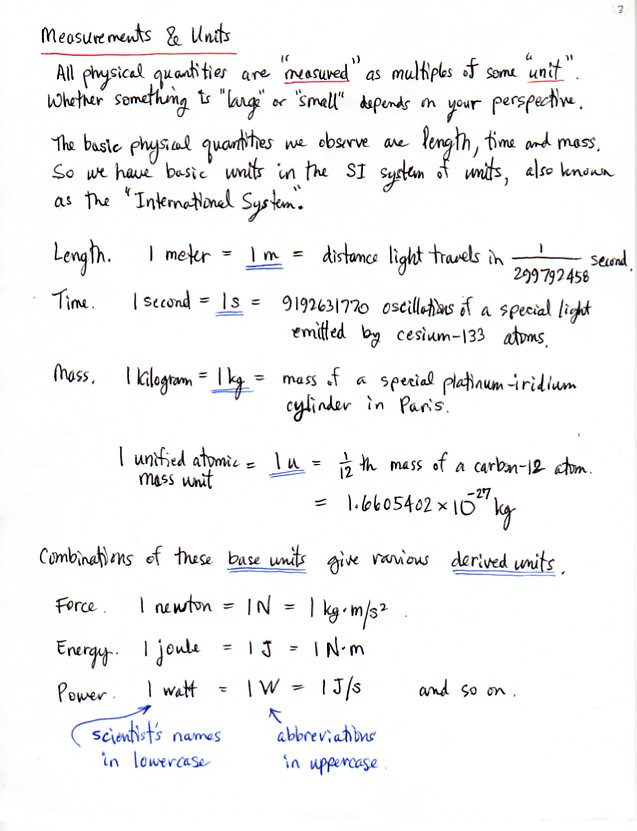 3
Measurements & Units
All physical quantities are "measured" as multiples of some "unit".
Whether something is "large" or "small" depends on your perspective.
The basic physical quantities we observe are length, time and mass.
So we have basic units in the SI system of units, also known
as the "International System".
Length. 1 meter = 1 m = distance light travels in 1/299792458 second.
Time. 1 second = 1 s = 9192631770 oscillations of a special light
emitted by cesium-133 atoms.
Mass. 1 kilogram = 1 kg = mass of a special platinum-iridium
cylinder in Paris.
1 unified atomic = 1 u = 1/12 th mass of a carbon-12 atom.
mass unit
= 1.6605402 × 10⁻²⁷ kg
Combinations of these base units give various derived units.
Force. 1 newton = 1 N = 1 kg·m/s².
Energy. 1 joule = 1 J = 1 N·m
Power. 1 watt = 1 W = 1 J/s and so on.
scientist's names abbreviations
in lowercase in uppercase.